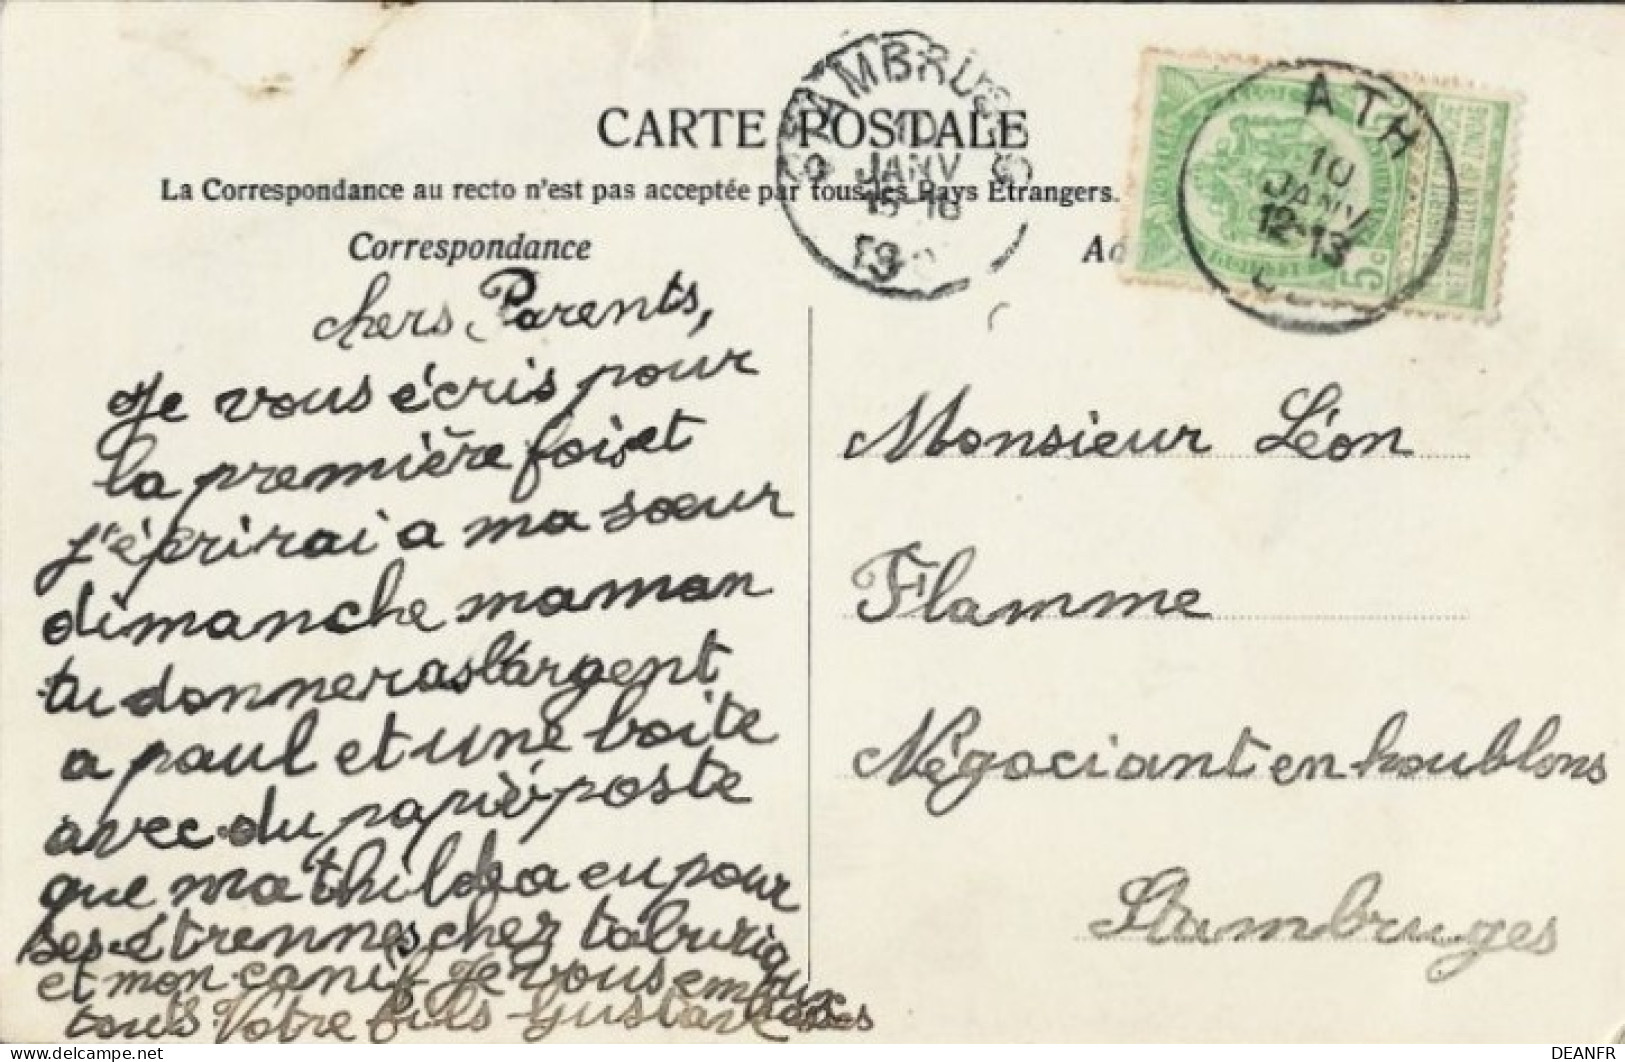 CARTE POSTALE
La Correspondance au recto n'est pas acceptée par tous les Pays Etrangers.
Correspondance
STAMBRUGES
10
JANV
15-16
19
ATH
10
JANV
12-13
5c
chers Parents,
Je vous écris pour
la première fois et
j'éçrirai a ma sœur
dimanche maman
tu donneras l'argent
a paul et une boite
avec du papié poste
que mathilde a eu pour
ses étrennes chez
et mon canif Je vous embrasse
tous Votre fils Gustave
Monsieur Léon
Flamme
Négociant en houblons
Stambruges
DEANFR